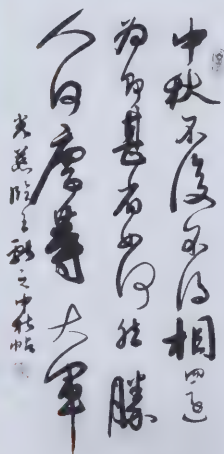 中秋不復不得相還
為即甚省如何然勝
人何慶等大軍
臨王獻之中秋帖